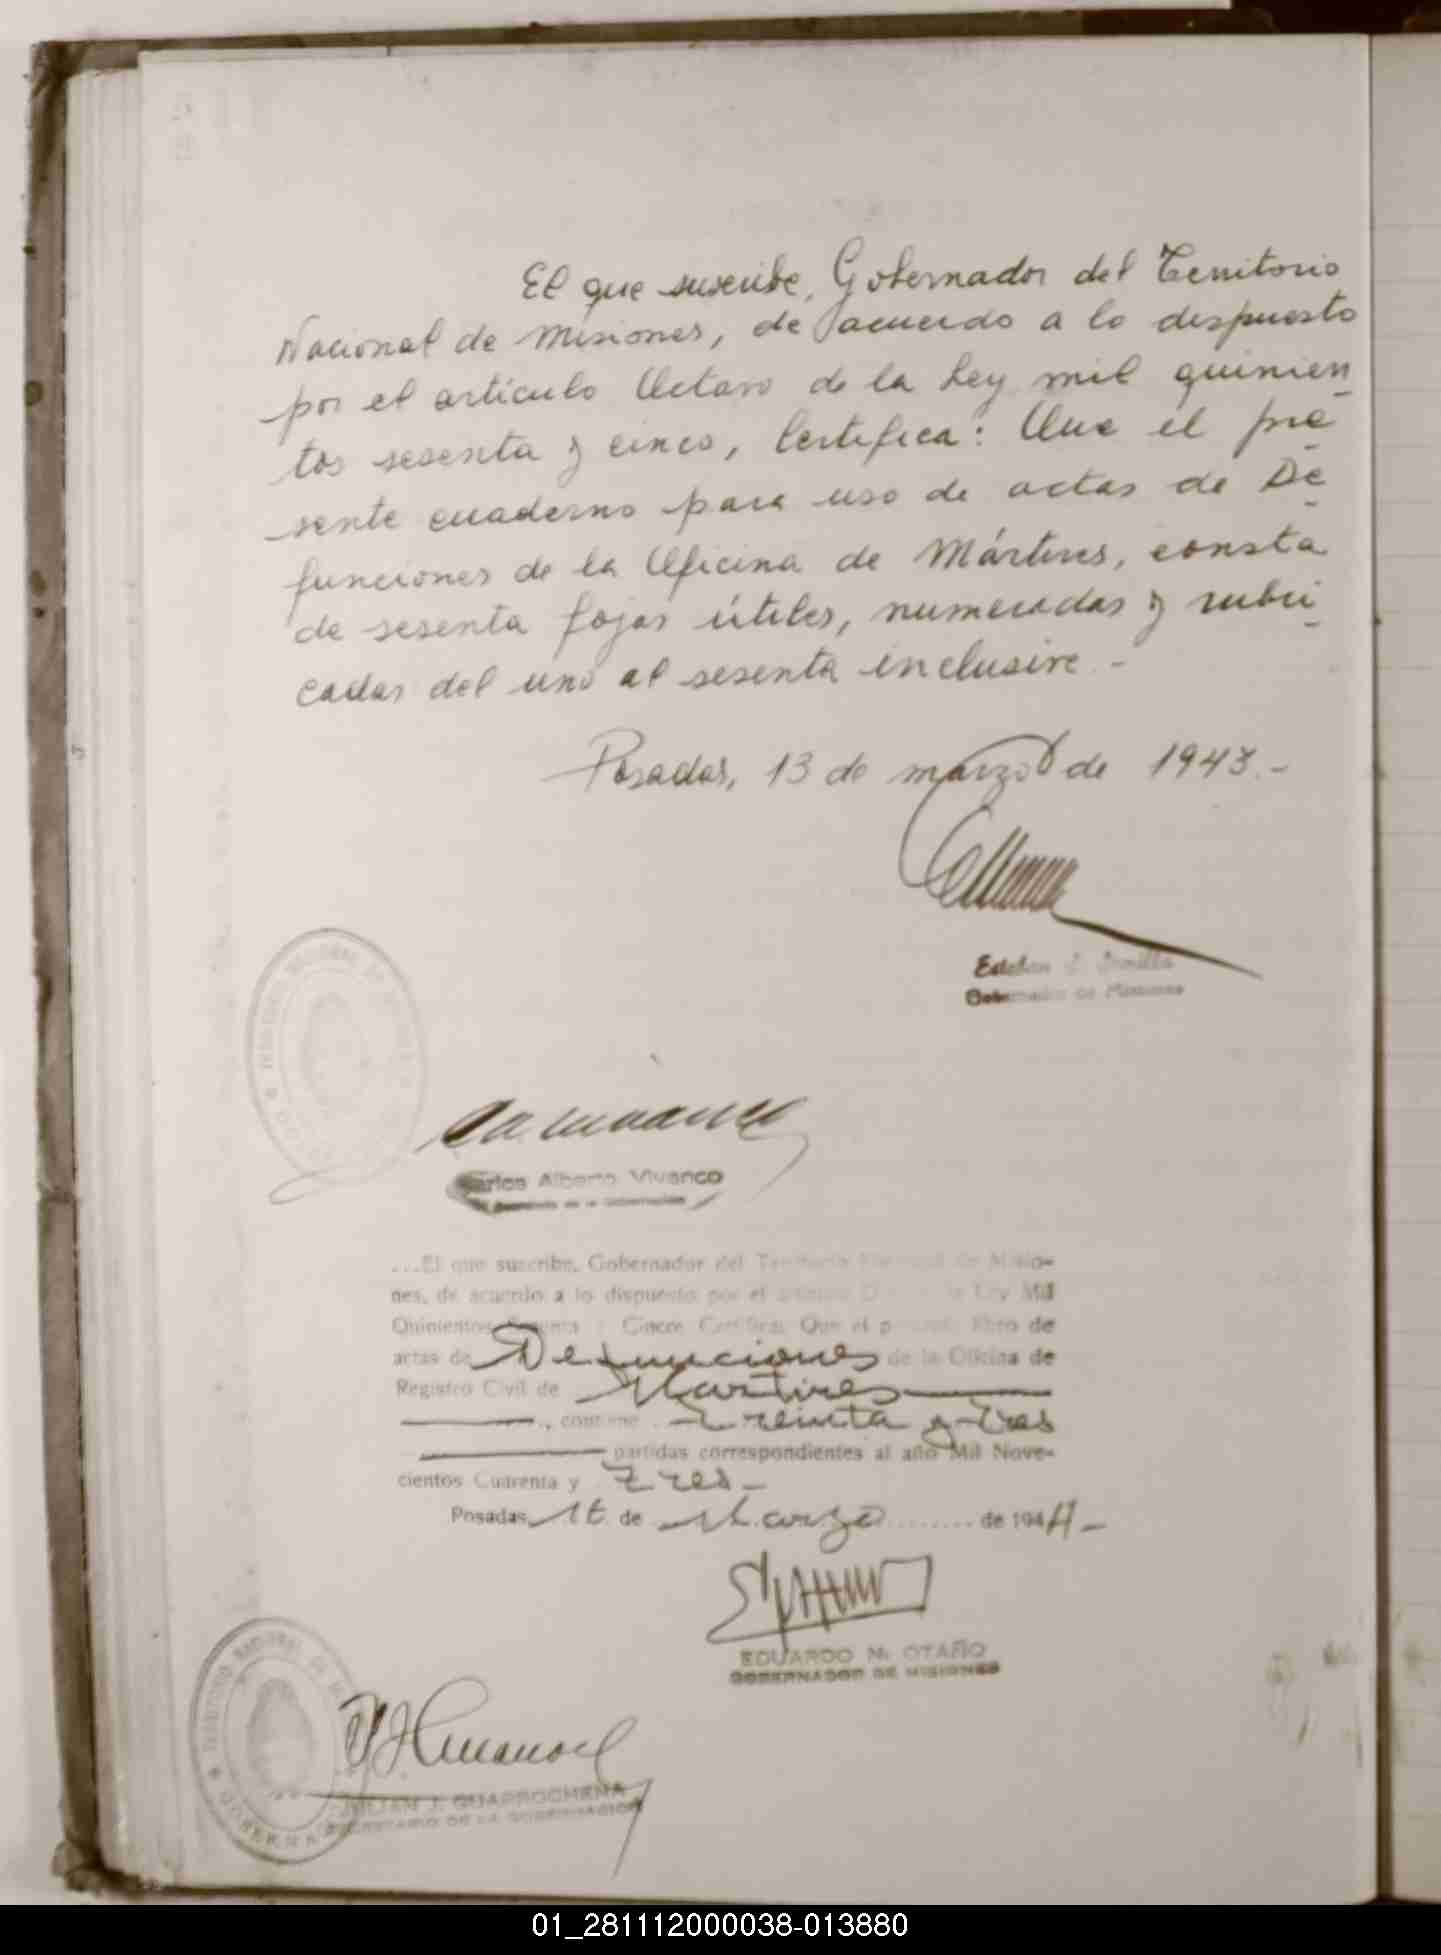 El que suscribe, Gobernador del Territorio
Nacional de Misiones, de acuerdo a lo dispuesto
por el artículo Octavo de la Ley mil quinien
tos sesenta y cinco, Certifica: Que el pre
sente cuaderno para uso de actas de De
funciones de la Oficina de Mártires, consta
de sesenta fojas útiles, numeradas y rubri
cadas del uno al sesenta inclusive.-
Posadas, 13 de marzo de 1943.-
Esteban
Gobernador de Misiones
Carlos Alberto Vivanco
Secretario de la Gobernación
...El que suscribe, Gobernador del Territorio Nacional de Misio-
nes, de acuerdo a lo dispuesto por el Ley Mil
Quinientos Sesenta y Cinco; Certifica: Que el presente libro de
actas de Defunciones de la Oficina de
Registro Civil de Martires
, contiene Treinta y tres
partidas correspondientes al año Mil Nove-
cientos Cuarenta y Tres-
Posadas, de Marzo ........ de 194
EDUARDO M. OTAÑO
GOBERNADOR DE MISIONES
TERRITORIO NACIONAL DE
JULIAN J.
SECRETARIO DE LA GOBERNACION
01_281112000038-013880